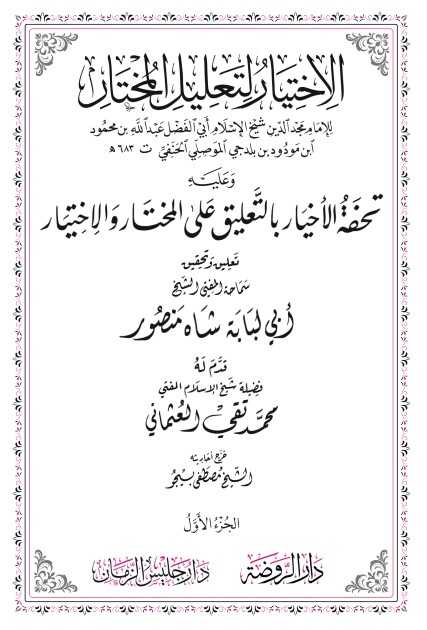 الاختيار لتعليل المختار
للإمام مجد الدين شيخ الإسلام أبي الفضل عبد الله بن محمود
ابن مودود بن بلدجي الموصلي الحنفي ت ٦٨٣ هـ
وعليه
تحفة الأخيار بالتعليق على المختار والاختيار
تعليق وتحقيق
سماحة المفتي الشيخ
أبي لبابة شاه منصور
قدم له
فضيلة شيخ الإسلام المفتي
محمد تقي العثماني
خرج أحاديثه
الشيخ مصطفى بيجو
الجزء الأول
دار الروضة
دار جليس الزمان